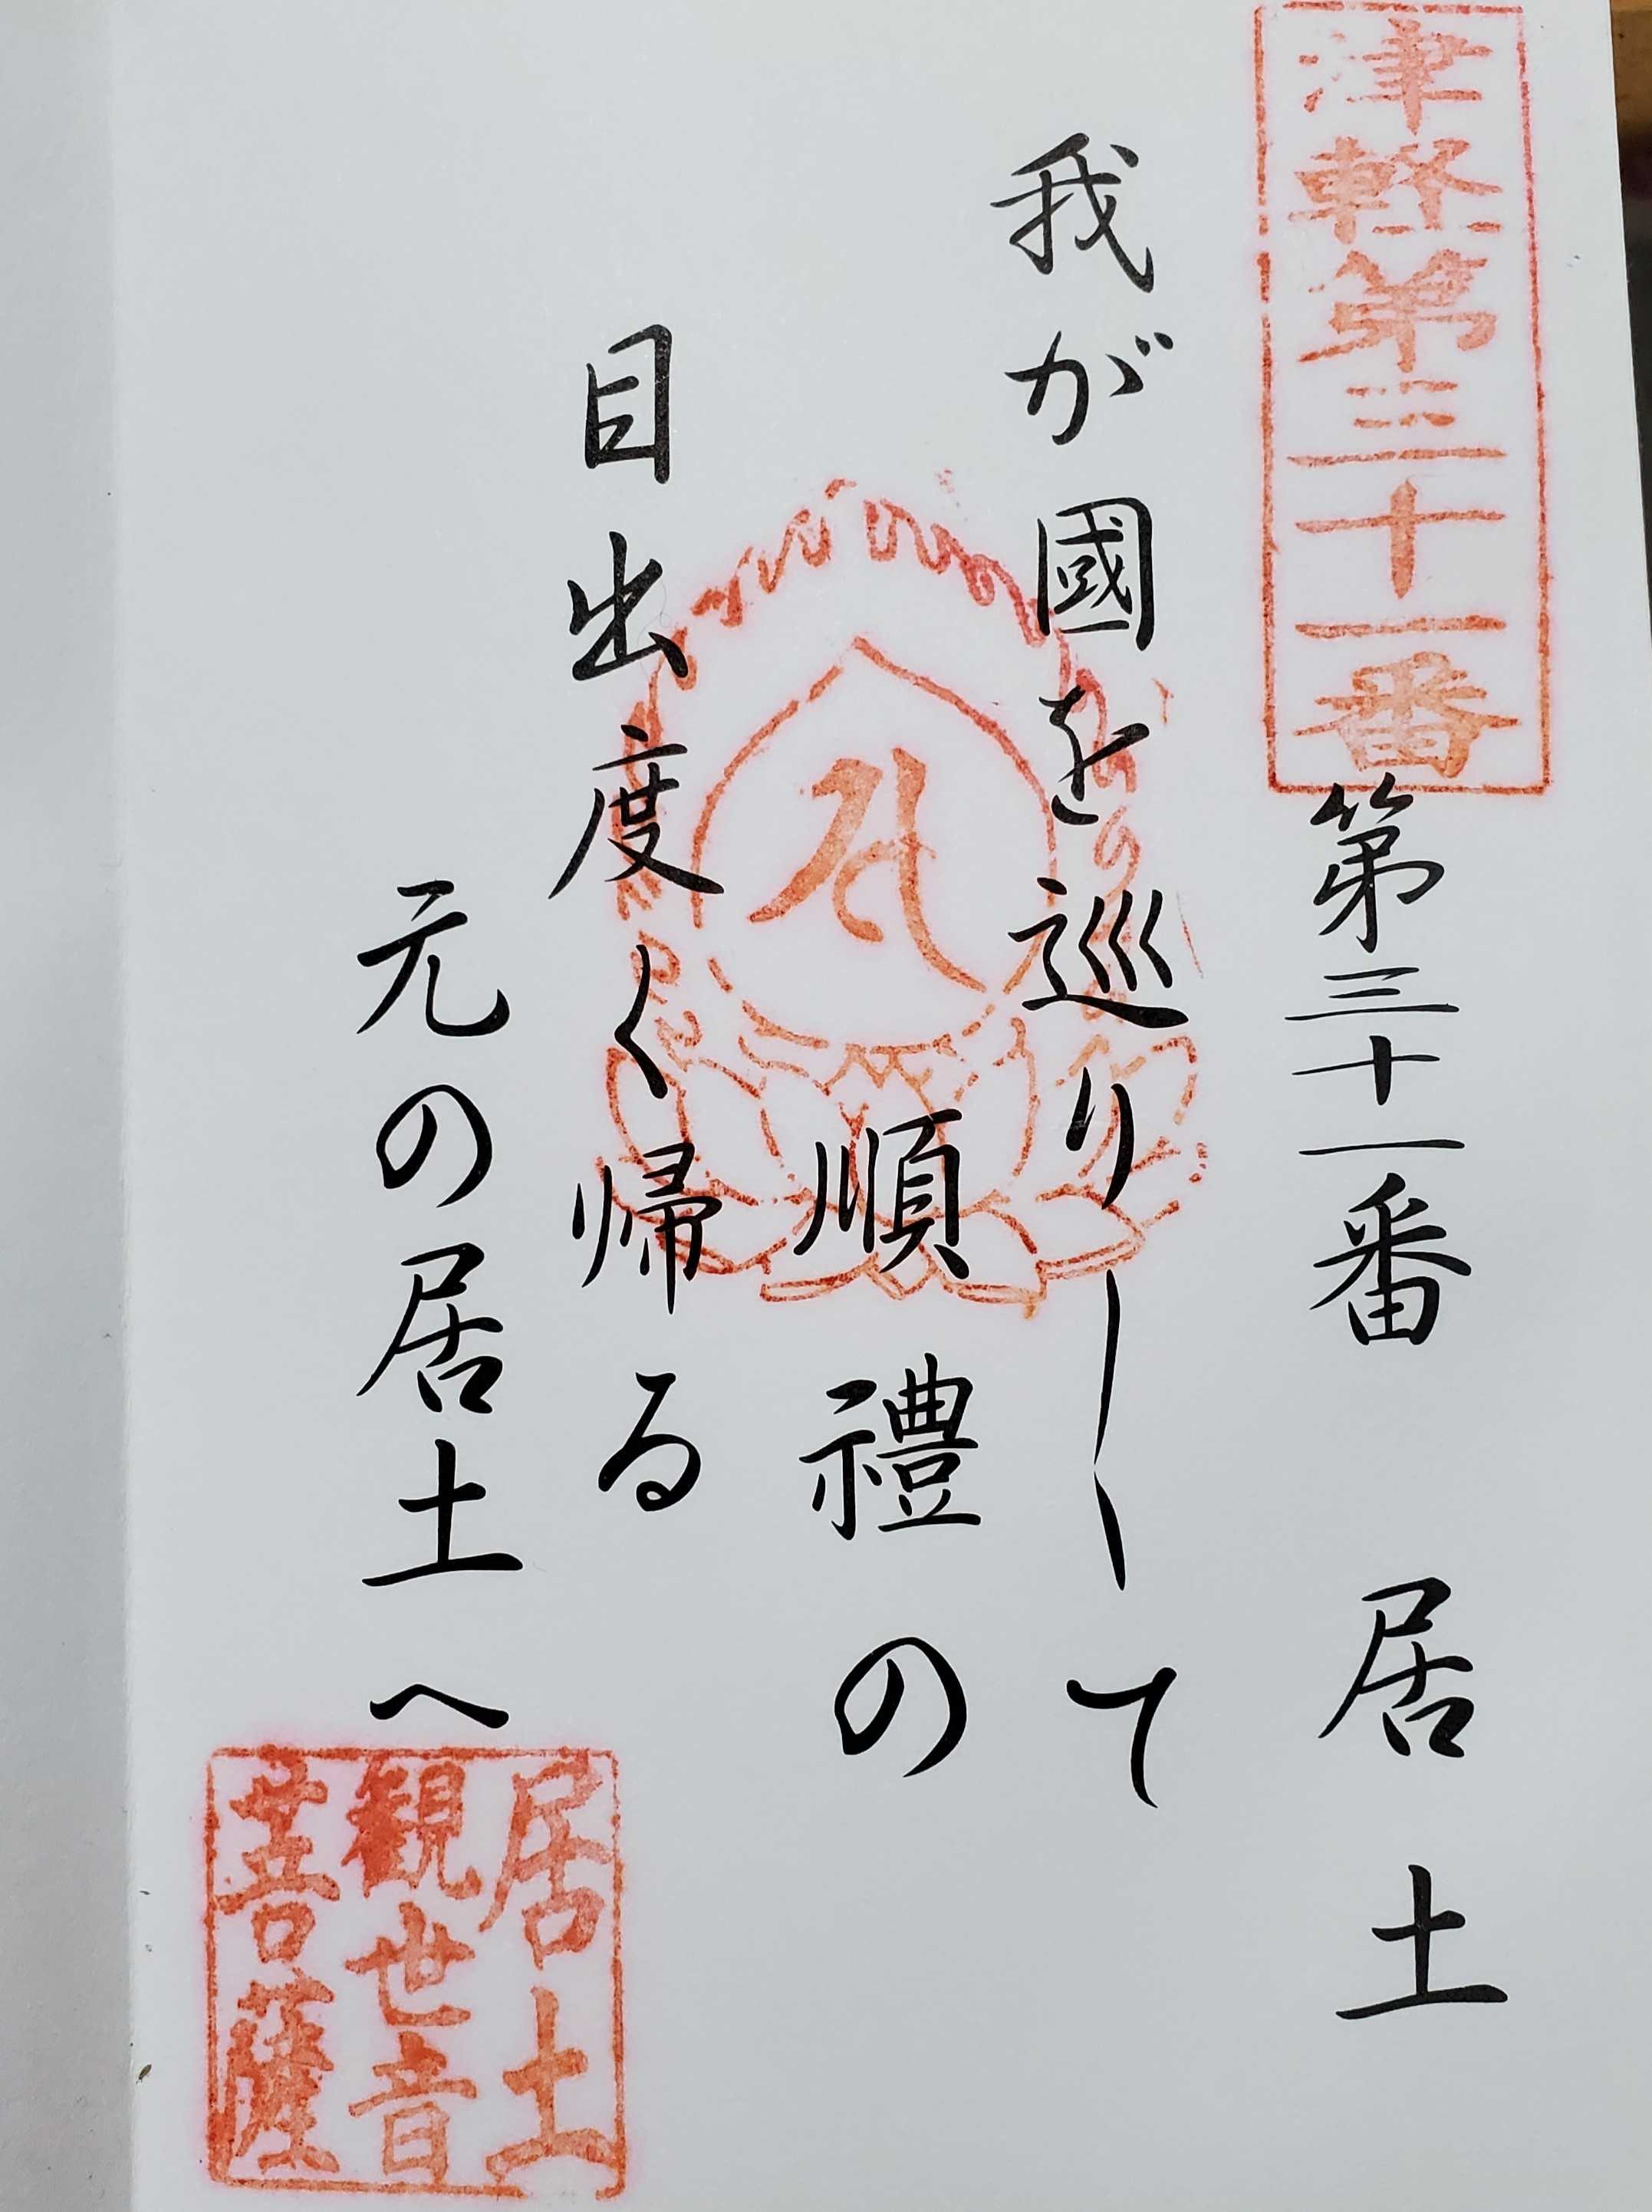 津軽第三十一番
第三十一番 居土
我が國を巡り〳〵て
順禮の
目出度く帰る
元の居土へ
𑖭
居土
観世音
菩薩